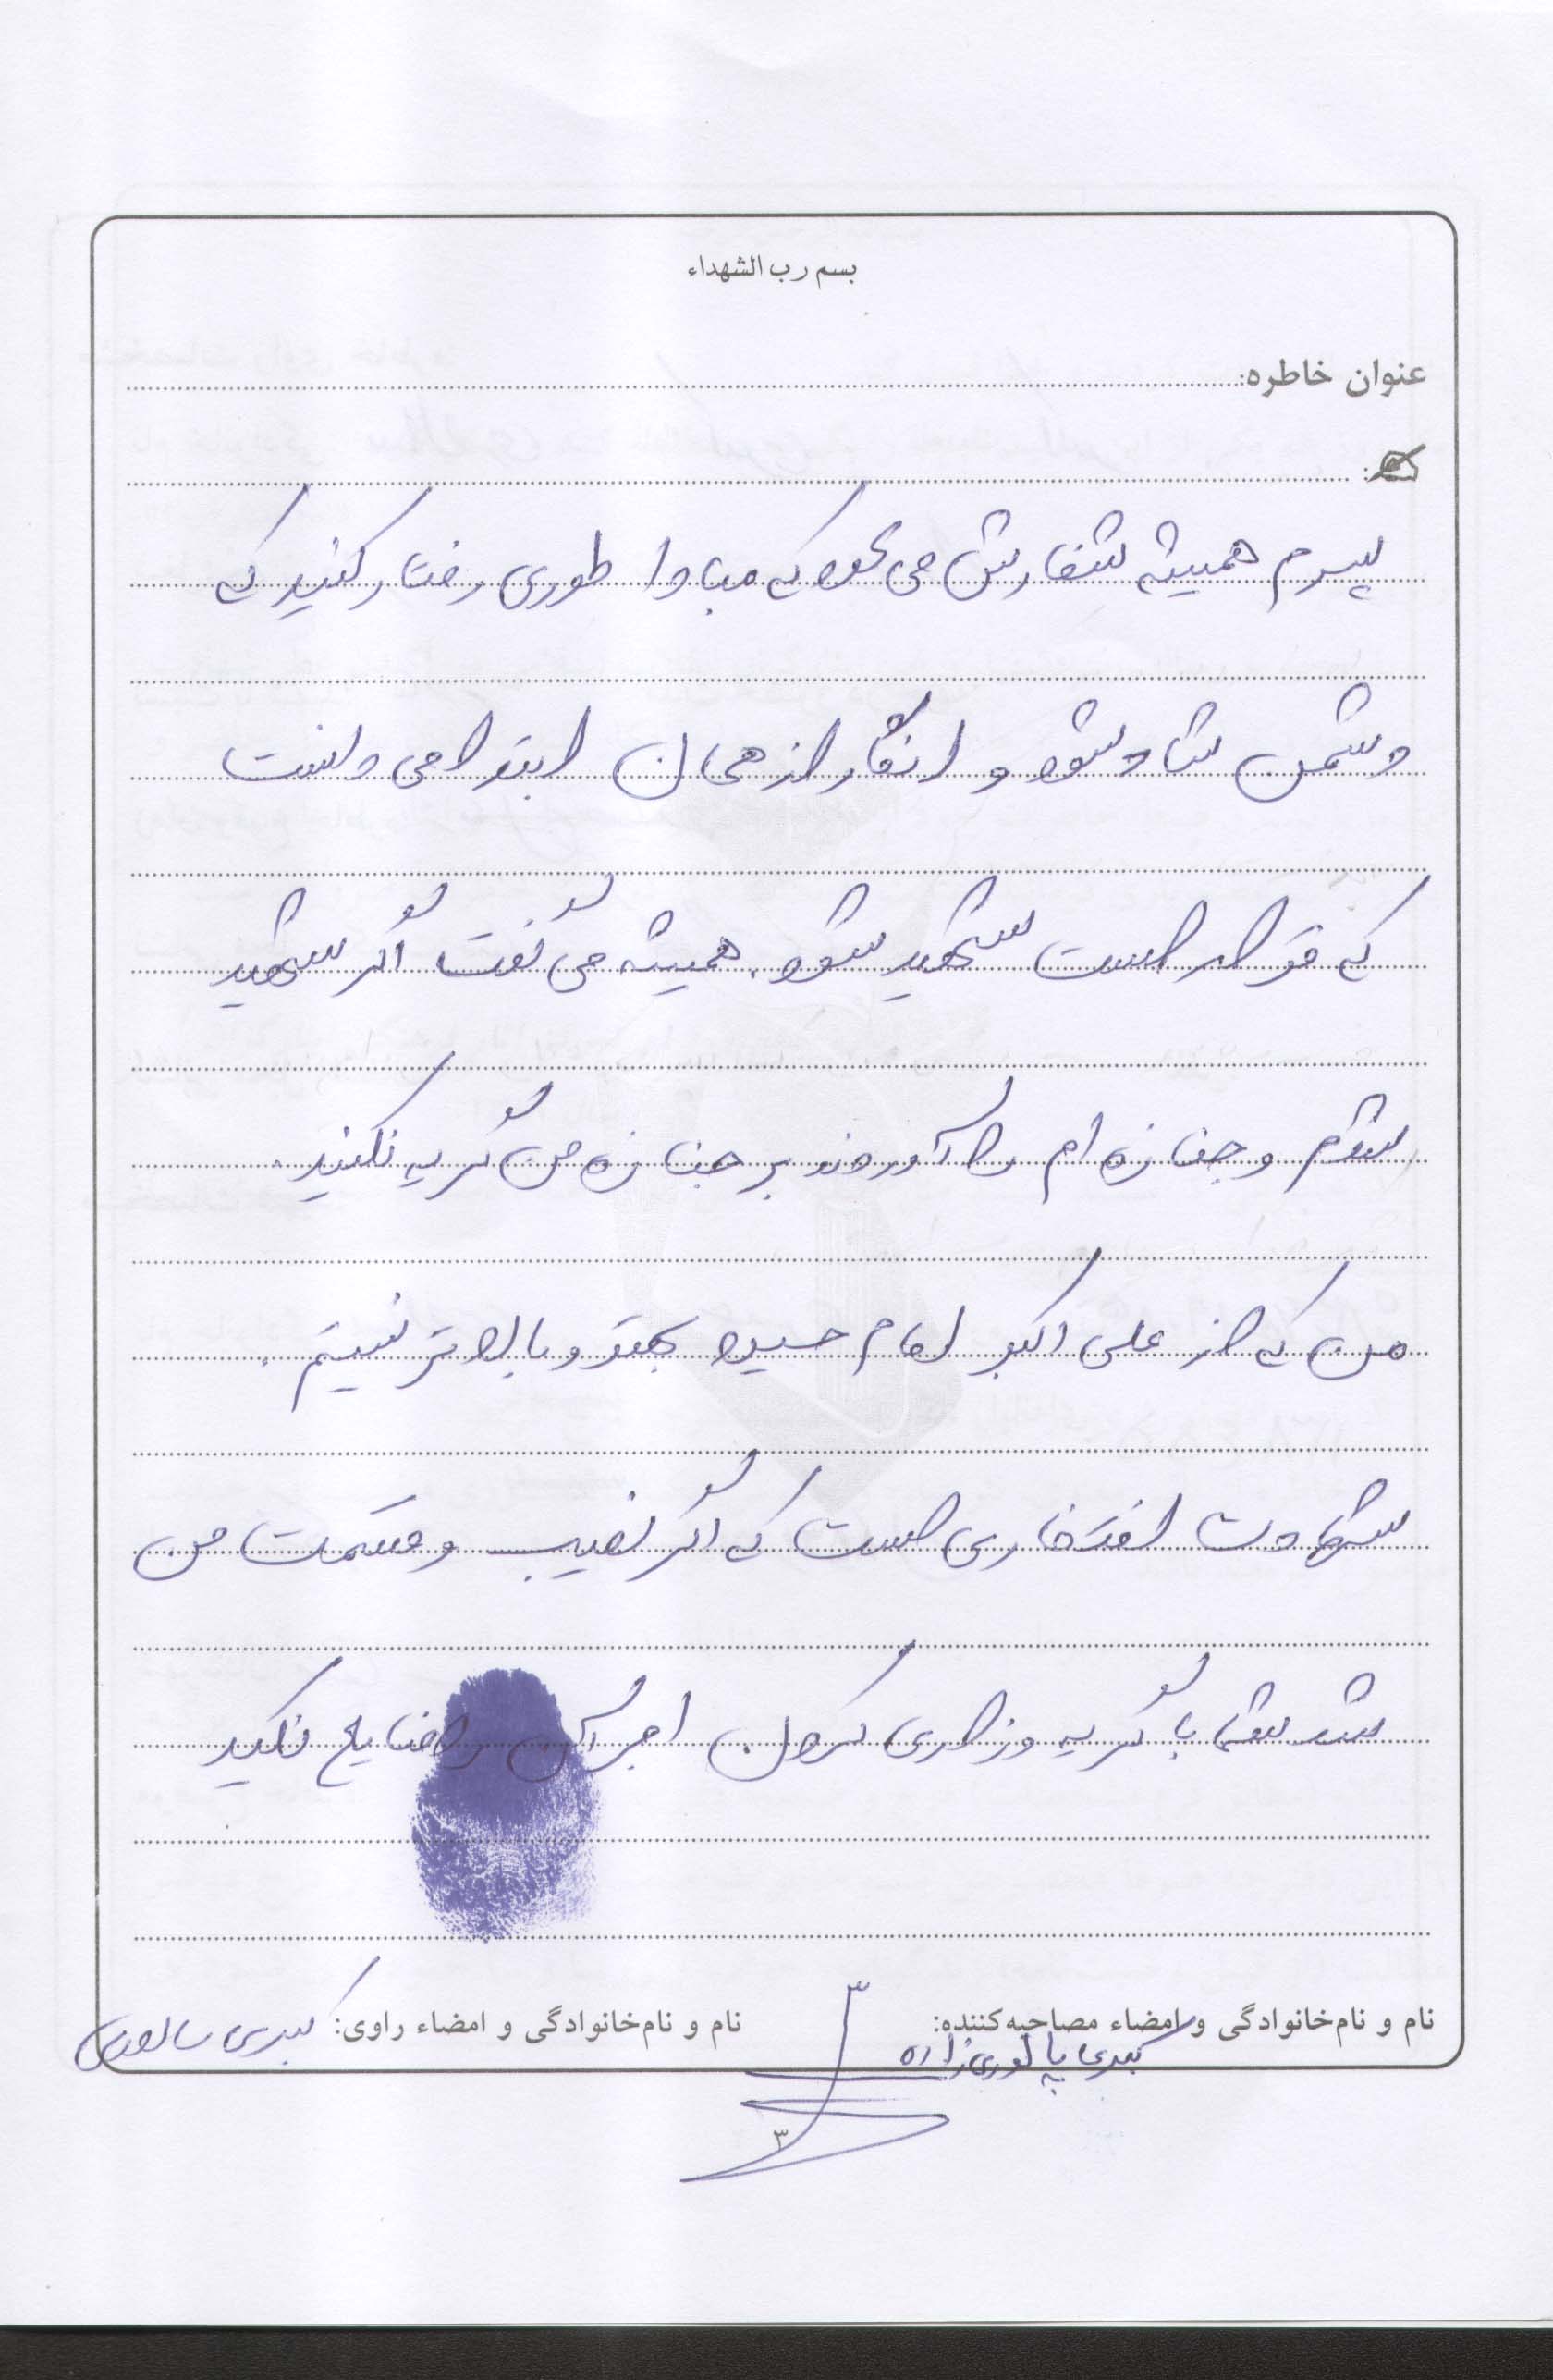 بسم رب الشهداء
عنوان خاطره:
پسرم همیشه سفارش می کرد که مبادا طوری رفتار کنید که
دشمن شاد شود و انگار از همان ابتدا می دانست
که قرار است شهید شود. همیشه می گفت اگر شهید
شوم و جنازه ام را آوردند بر جنازه من گریه نکنید.
من که از علی اکبر امام حسین بهتر و بالاتر نیستم.
شهادت افتخاری است که اگر نصیب و قسمت من
شد شما با گریه و زاری کردن اجر آن را ضایع نکنید
نام و نام‌خانوادگی و امضاء مصاحبه‌کننده:
نام و نام‌خانوادگی و امضاء راوی: کبری
کبری
۳